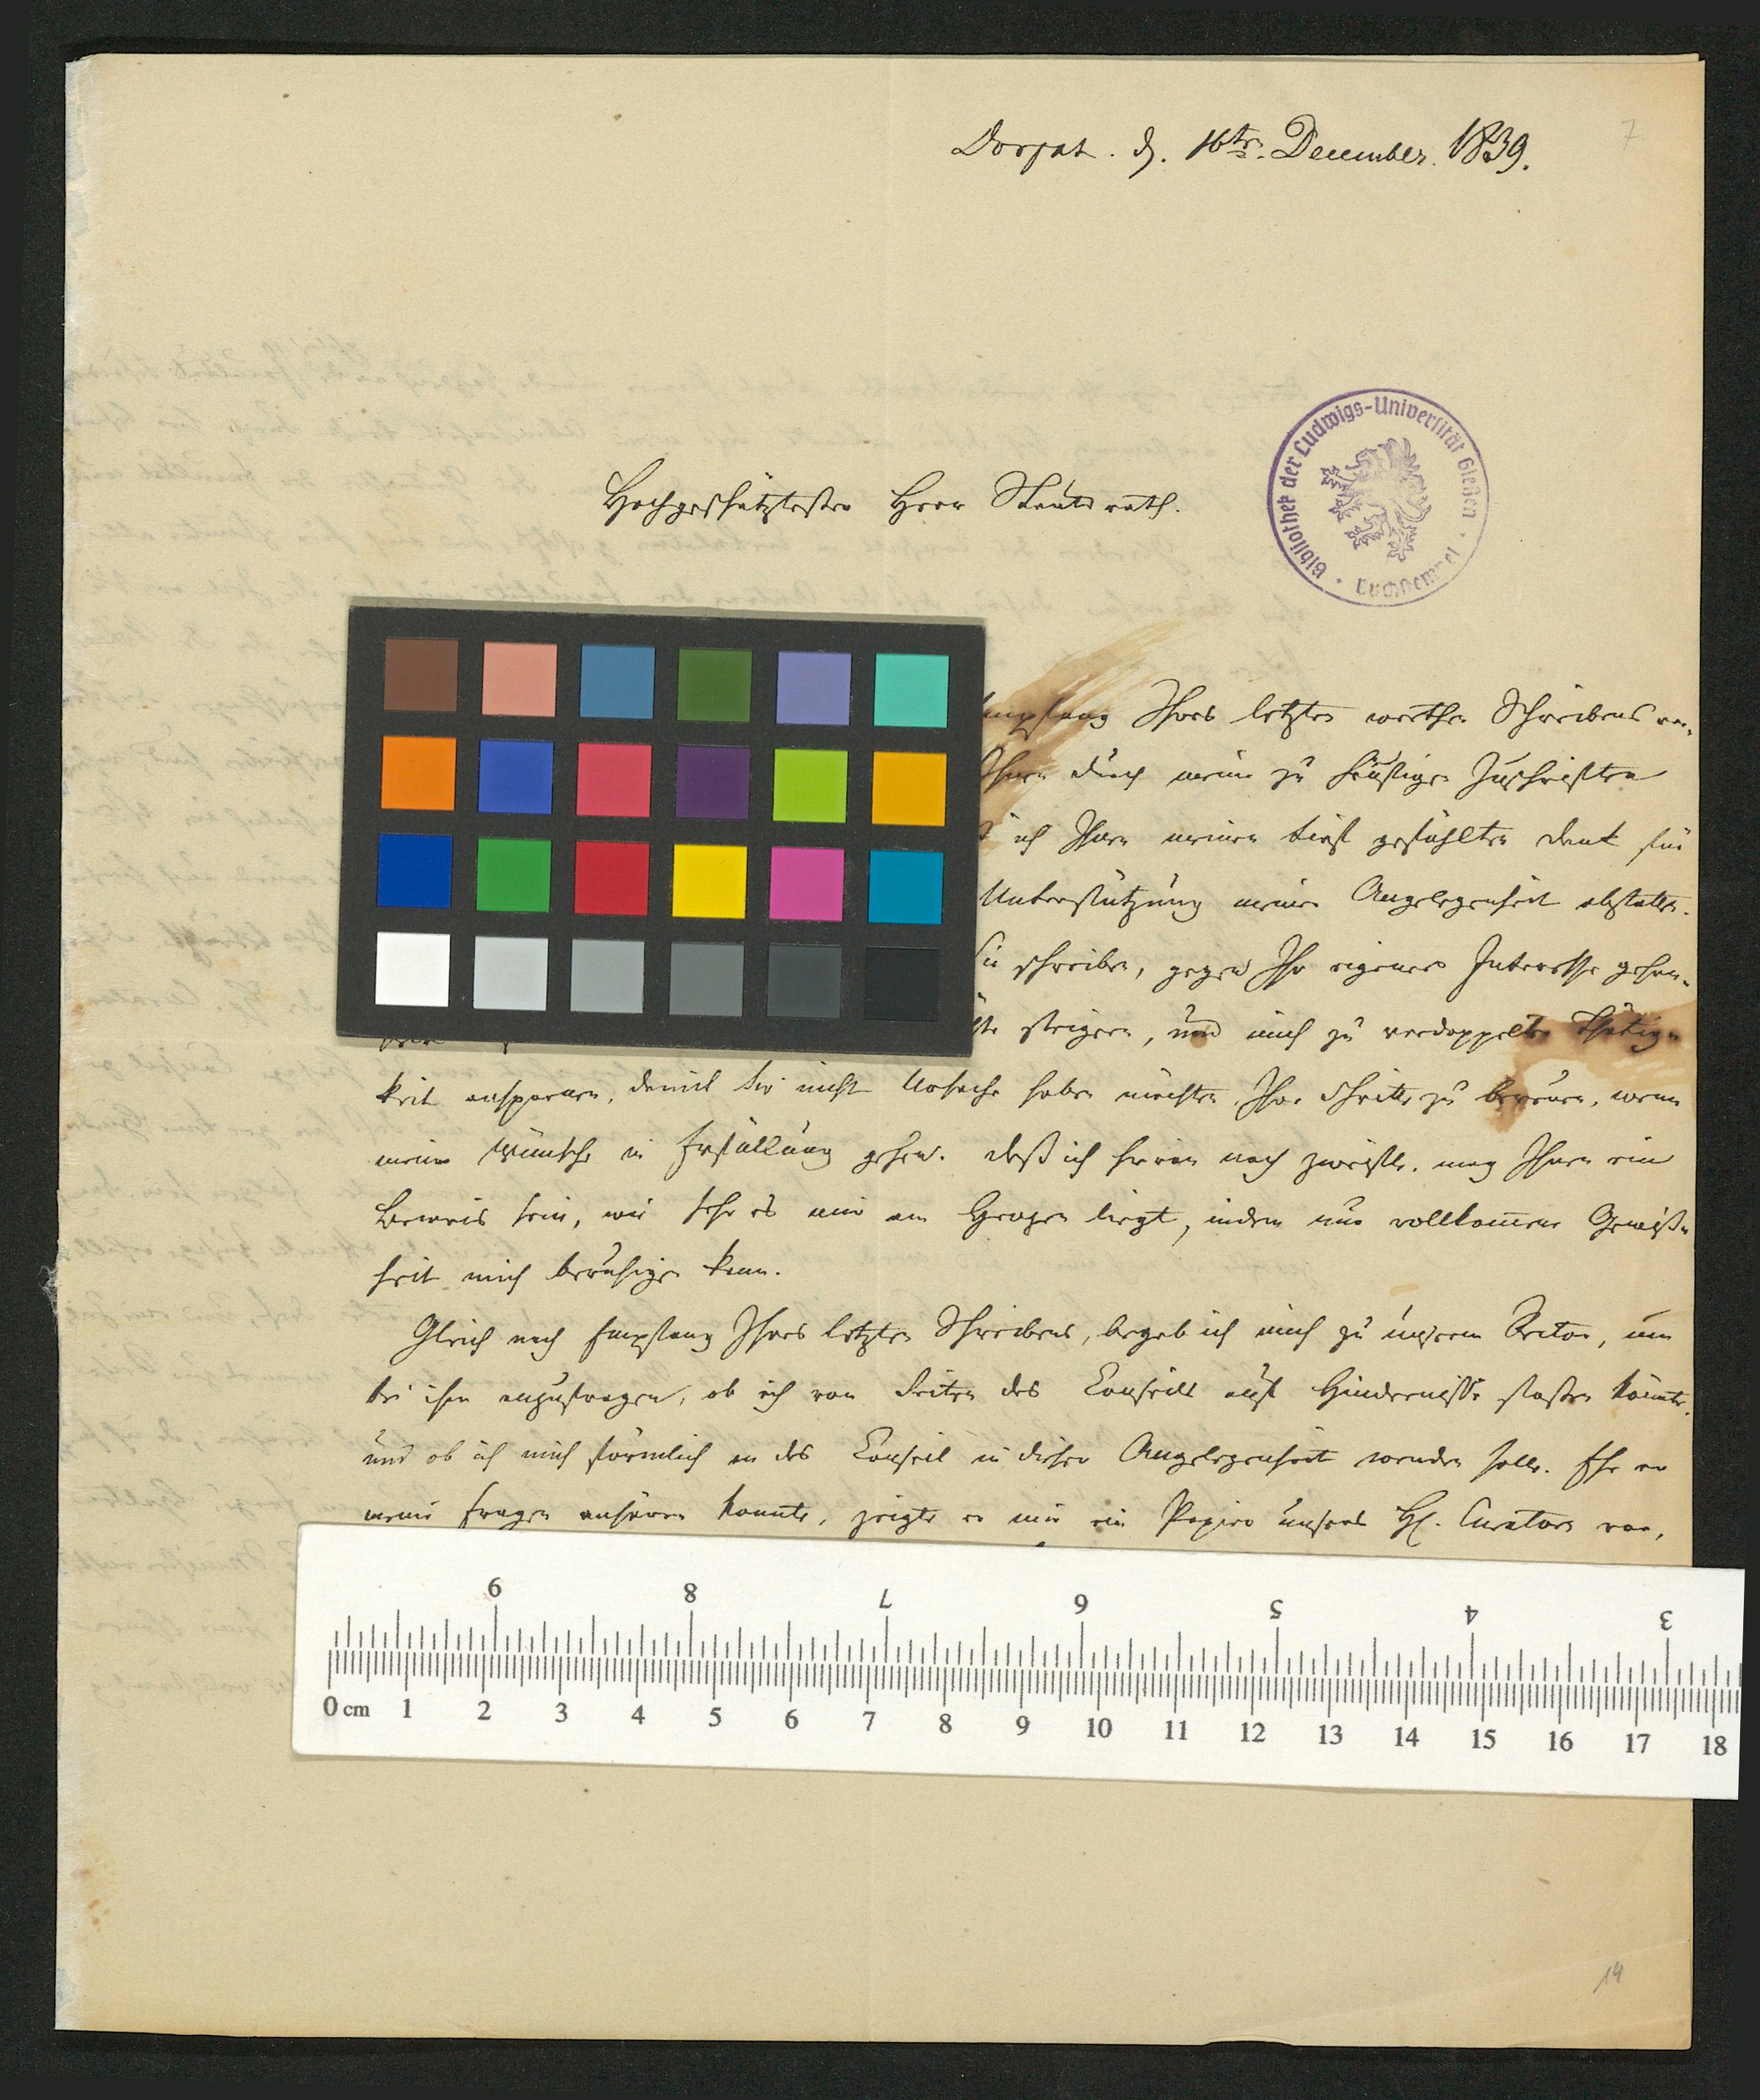 7.
Dorpat. d. 16ten December. 1839.
Bibliothek der Ludwigs-Universität Gießen
Hochgeschätztester Herr Staatsrath.
Empfang Ihres letzten werthen Schreibens
Ihnen durch meine zu häufigen Zuschriften
ich Ihnen meinen tiefst gefühlten Dank für
Unterstützung meiner Angelegenheit abstatten.
Sie schreiben, gegen Ihr eigenes Interesse gehan-
steigern, und mich zu verdoppelter Thätig-
keit anspornen, damit Sie nicht Ursache haben möchten, Ihre Schritte zu bereuen, wenn
meine Wünsche in Erfüllung gehen. Daß ich hieran noch zweifle, mag Ihnen ein
Beweis sein, wie sehr es mir am Herzen liegt, indem nur vollkommene Gewiß-
heit mich beruhigen kann.
Gleich nach Empfang Ihres letzten Schreibens, begab ich mich zu unserem Rector, um
bei ihm anzufragen, ob ich von Seiten des Conseils auf Hindernisse stoßen könnte,
und ob ich mich förmlich an das Conseil in dieser Angelegenheit wenden solle. Ehe er
meine Fragen anhören konnte, zeigte er mir ein Papier unseres H. Curators vor,
9 8 7 6 5 4 3
0 cm 1 2 3 4 5 6 7 8 9 10 11 12 13 14 15 16 17 18
14